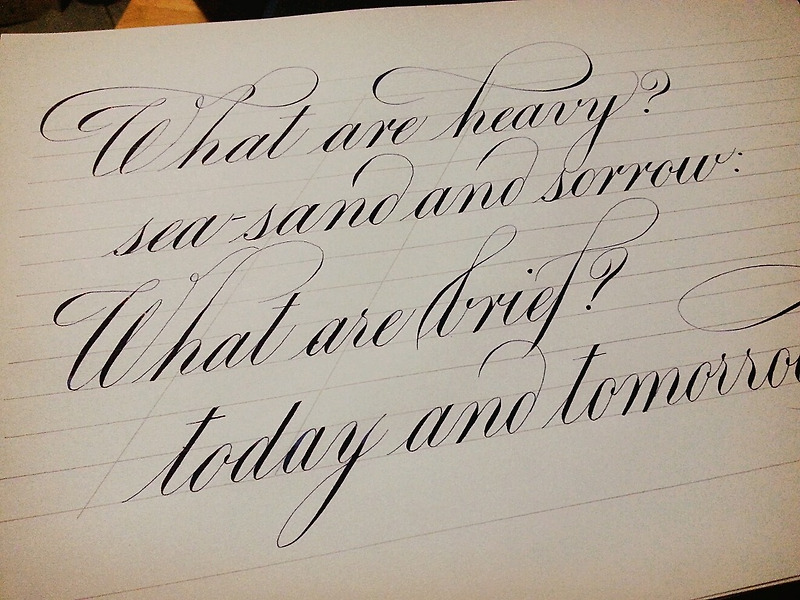 What are heavy?
sea-sand and sorrow:
What are brief?
today and tomorro